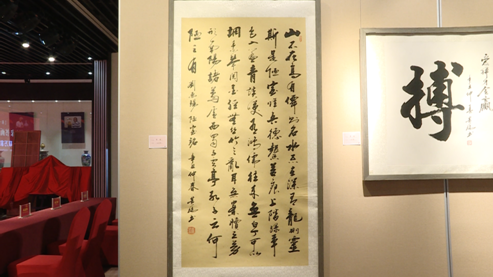 山不在高有仙則名水不在深有龍則靈
斯是陋室惟吾德馨苔痕上階綠草
色入簾青談笑有鴻儒往來無白丁可以
調素琴閱金經無絲竹之亂耳無案牘之勞
形南陽諸葛廬西蜀子雲亭孔子云何
陋之有 劉禹錫陋室銘 辛丑仲春
搏